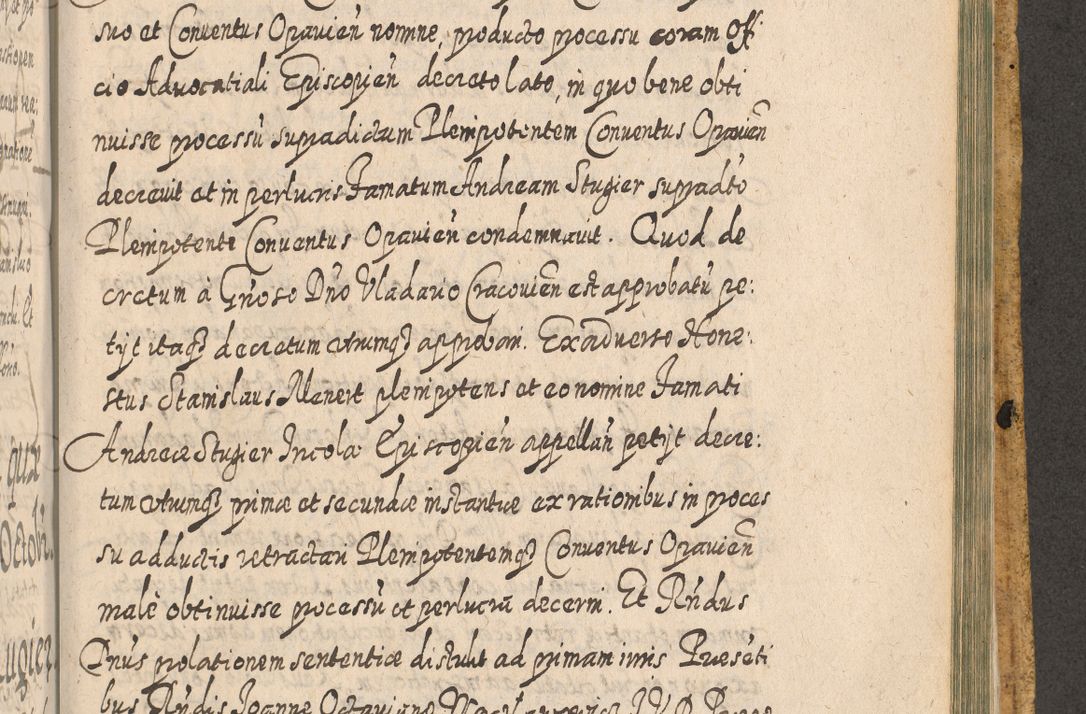 suo et Conventus Opavień nomine, producto processu coram Offi
cio Advocatiali Episcopień decreto lato, in quo bene obti
nuisse processū supradictum Plenipotentem Conventus Opavień
decrevit et in perlucris Famatum Andream Stugier supradto
Plenipotente Conventus Opavień condemnavit. Quod de
cretum à Gñoso Dño Vladario Cracovień est approbatū pe:
tijt itaq3 decretum utrumq3 approbari. Ex adverso Hone:
stus Stanislaus Menert plenipotens et eo nomine Famati
Andreæ Stugier Incola Episcopień appellań petijt decre:
tum utrumq3 primæ et secundæ instantiæ ex rationibus in proces
su adductis retractari Plenipotentemq3 Conventus Opavień
malè obtinuisse processū et perlucra decerni. Et Rńdus
Dnus prolationem sententiæ distulit ad primam iuris Præsēti
bus Rńdis Joanne Octaviano J.V.D.
quæ
Octob: